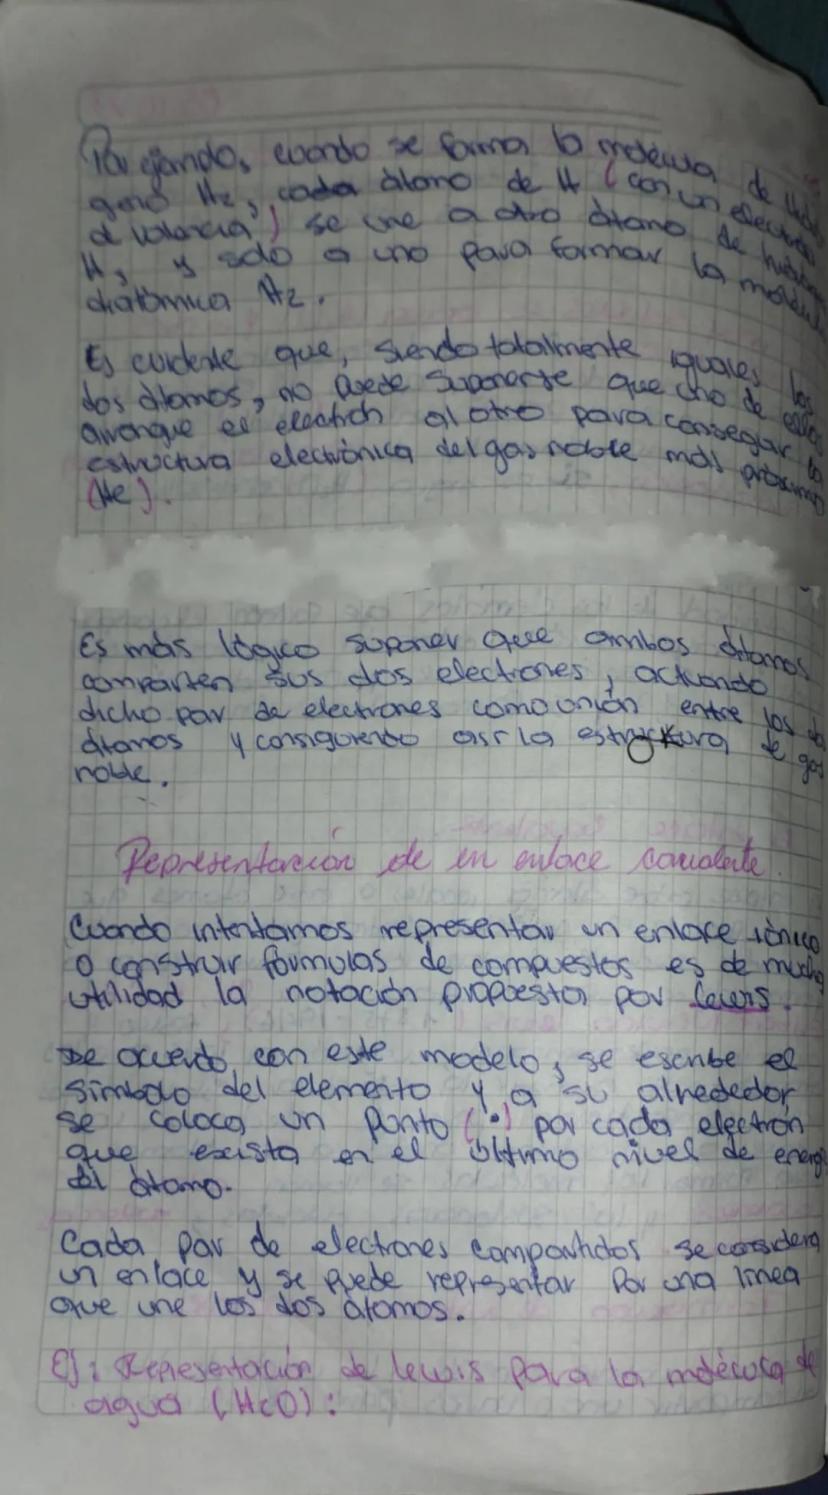 cuando se forma la molécula de
H2, cada átomo de H (con un electrón
d valencia) se une a otro átomo de
H, y solo a uno para formar la
diatómica H2.
Es evidente que, siendo totalmente iguales los
dos átomos, no puede suponerse que uno de ellos
arranque el electrón al otro para conseguir la
estructura electrónica del gas noble más próximo
(He).
Es más lógico suponer que ambos átomos
comparten sus dos electrones, actuando
dicho par de electrones como unión entre los
átomos y consiguiendo así la estructura de gas
noble.
Representación de un enlace covalente.
Cuando intentamos representar un enlace iónico
o construir fórmulas de compuestos es de mucha
utilidad la notación propuesta por Lewis.
De acuerdo con este modelo, se escribe el
símbolo del elemento y a su alrededor
se coloca un punto (•) por cada electrón
que exista en el último nivel de energ
del átomo.
Cada par de electrones compartidos se considera
un enlace y se puede representar por una línea
que une los dos átomos.
Ej: Representación de lewis para la molécula de
agua (H2O):